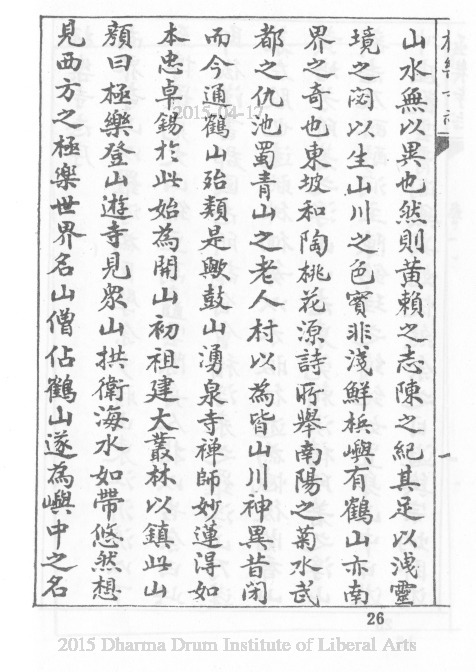 山水無以異也然則黃賴之志陳之紀其足以洩靈
境之閟以生山川之色實非淺鮮梹嶼有鶴山亦南
界之奇也東坡和陶桃花源詩所舉南陽之菊水武
都之仇池蜀青山之老人村以為皆山川神異昔閉
而今通鶴山殆類是歟鼓山湧泉寺禅師妙蓮淂如
本忠卓錫於此始為開山初祖建大叢林以鎮此山
顏曰極樂登山遊寺見眾山拱衛海水如帶悠然想
見西方之極樂世界名山僧佔鶴山遂為嶼中之名
一
26
2015-04-17
2015 Dharma Drum Institute of Liberal Arts